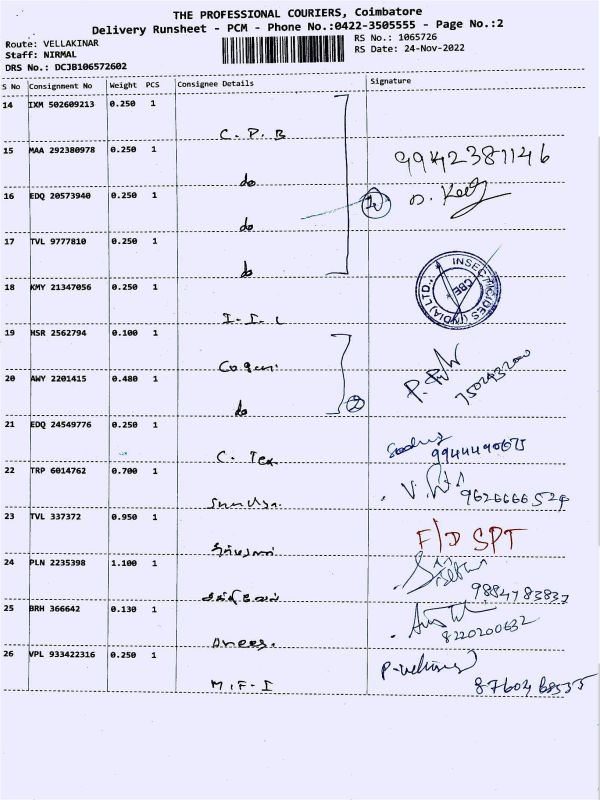 THE PROFESSIONAL COURIERS, Coimbatore
Delivery Runsheet - PCM - Phone No.:0422-3505555 - Page No.:2
Route: VELLAKINAR
Staff: NIRMAL
DRS No.: DCJB106572602
RS No.: 1065726
RS Date: 24-Nov-2022
S No Consignment No Weight PCS Consignee Details Signature
14 IXM 502609213 0.250 1
C. P. B
15 MAA 292380978 0.250 1
9942381146
do
16 EDQ 20573940 0.250 1
do
17 TVL 9777810 0.250 1
do
18 KMY 21347056 0.250 1
INSECTICIDES (INDIA) LTD., CBE
I-I-L
19 HSR 2562794 0.100 1
20 AWY 2201415 0.480 1
do 2
21 EDQ 24549776 0.250 1
C. Tex 9944490675
22 TRP 6014762 0.700 1
9626666524
23 TVL 337372 0.950 1
F/D SPT
24 PLN 2235398 1.100 1
9884783837
25 BRH 366642 0.130 1
8220200632
26 VPL 933422316 0.250 1
M.F-I 8760468535